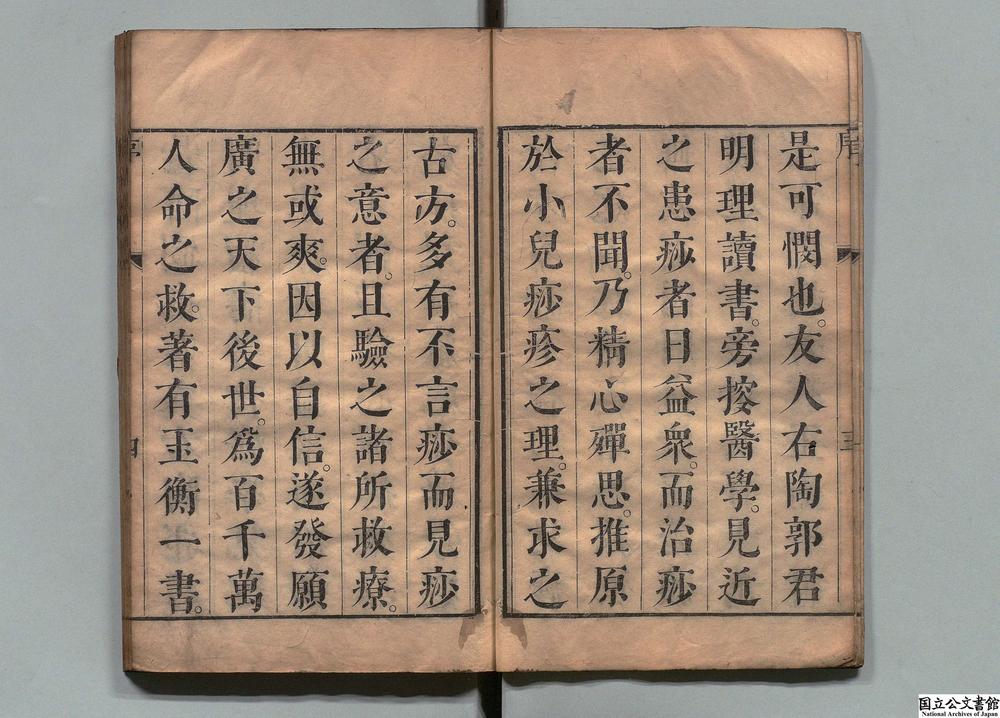 序
三
是可憫也。友人右陶郭君
明理讀書。旁按醫學。見近
之患痧者日益衆。而治痧
者不聞。乃精心殫思。推原
於小兒痧疹之理。兼求之
古方。多有不言痧而見痧
之意者。且驗之諸所救療。
無或爽。因以自信。遂發願
廣之天下後世。爲百千萬
人命之救。著有玉衡一書。
序
四
国立公文書館
National Archives of Japan